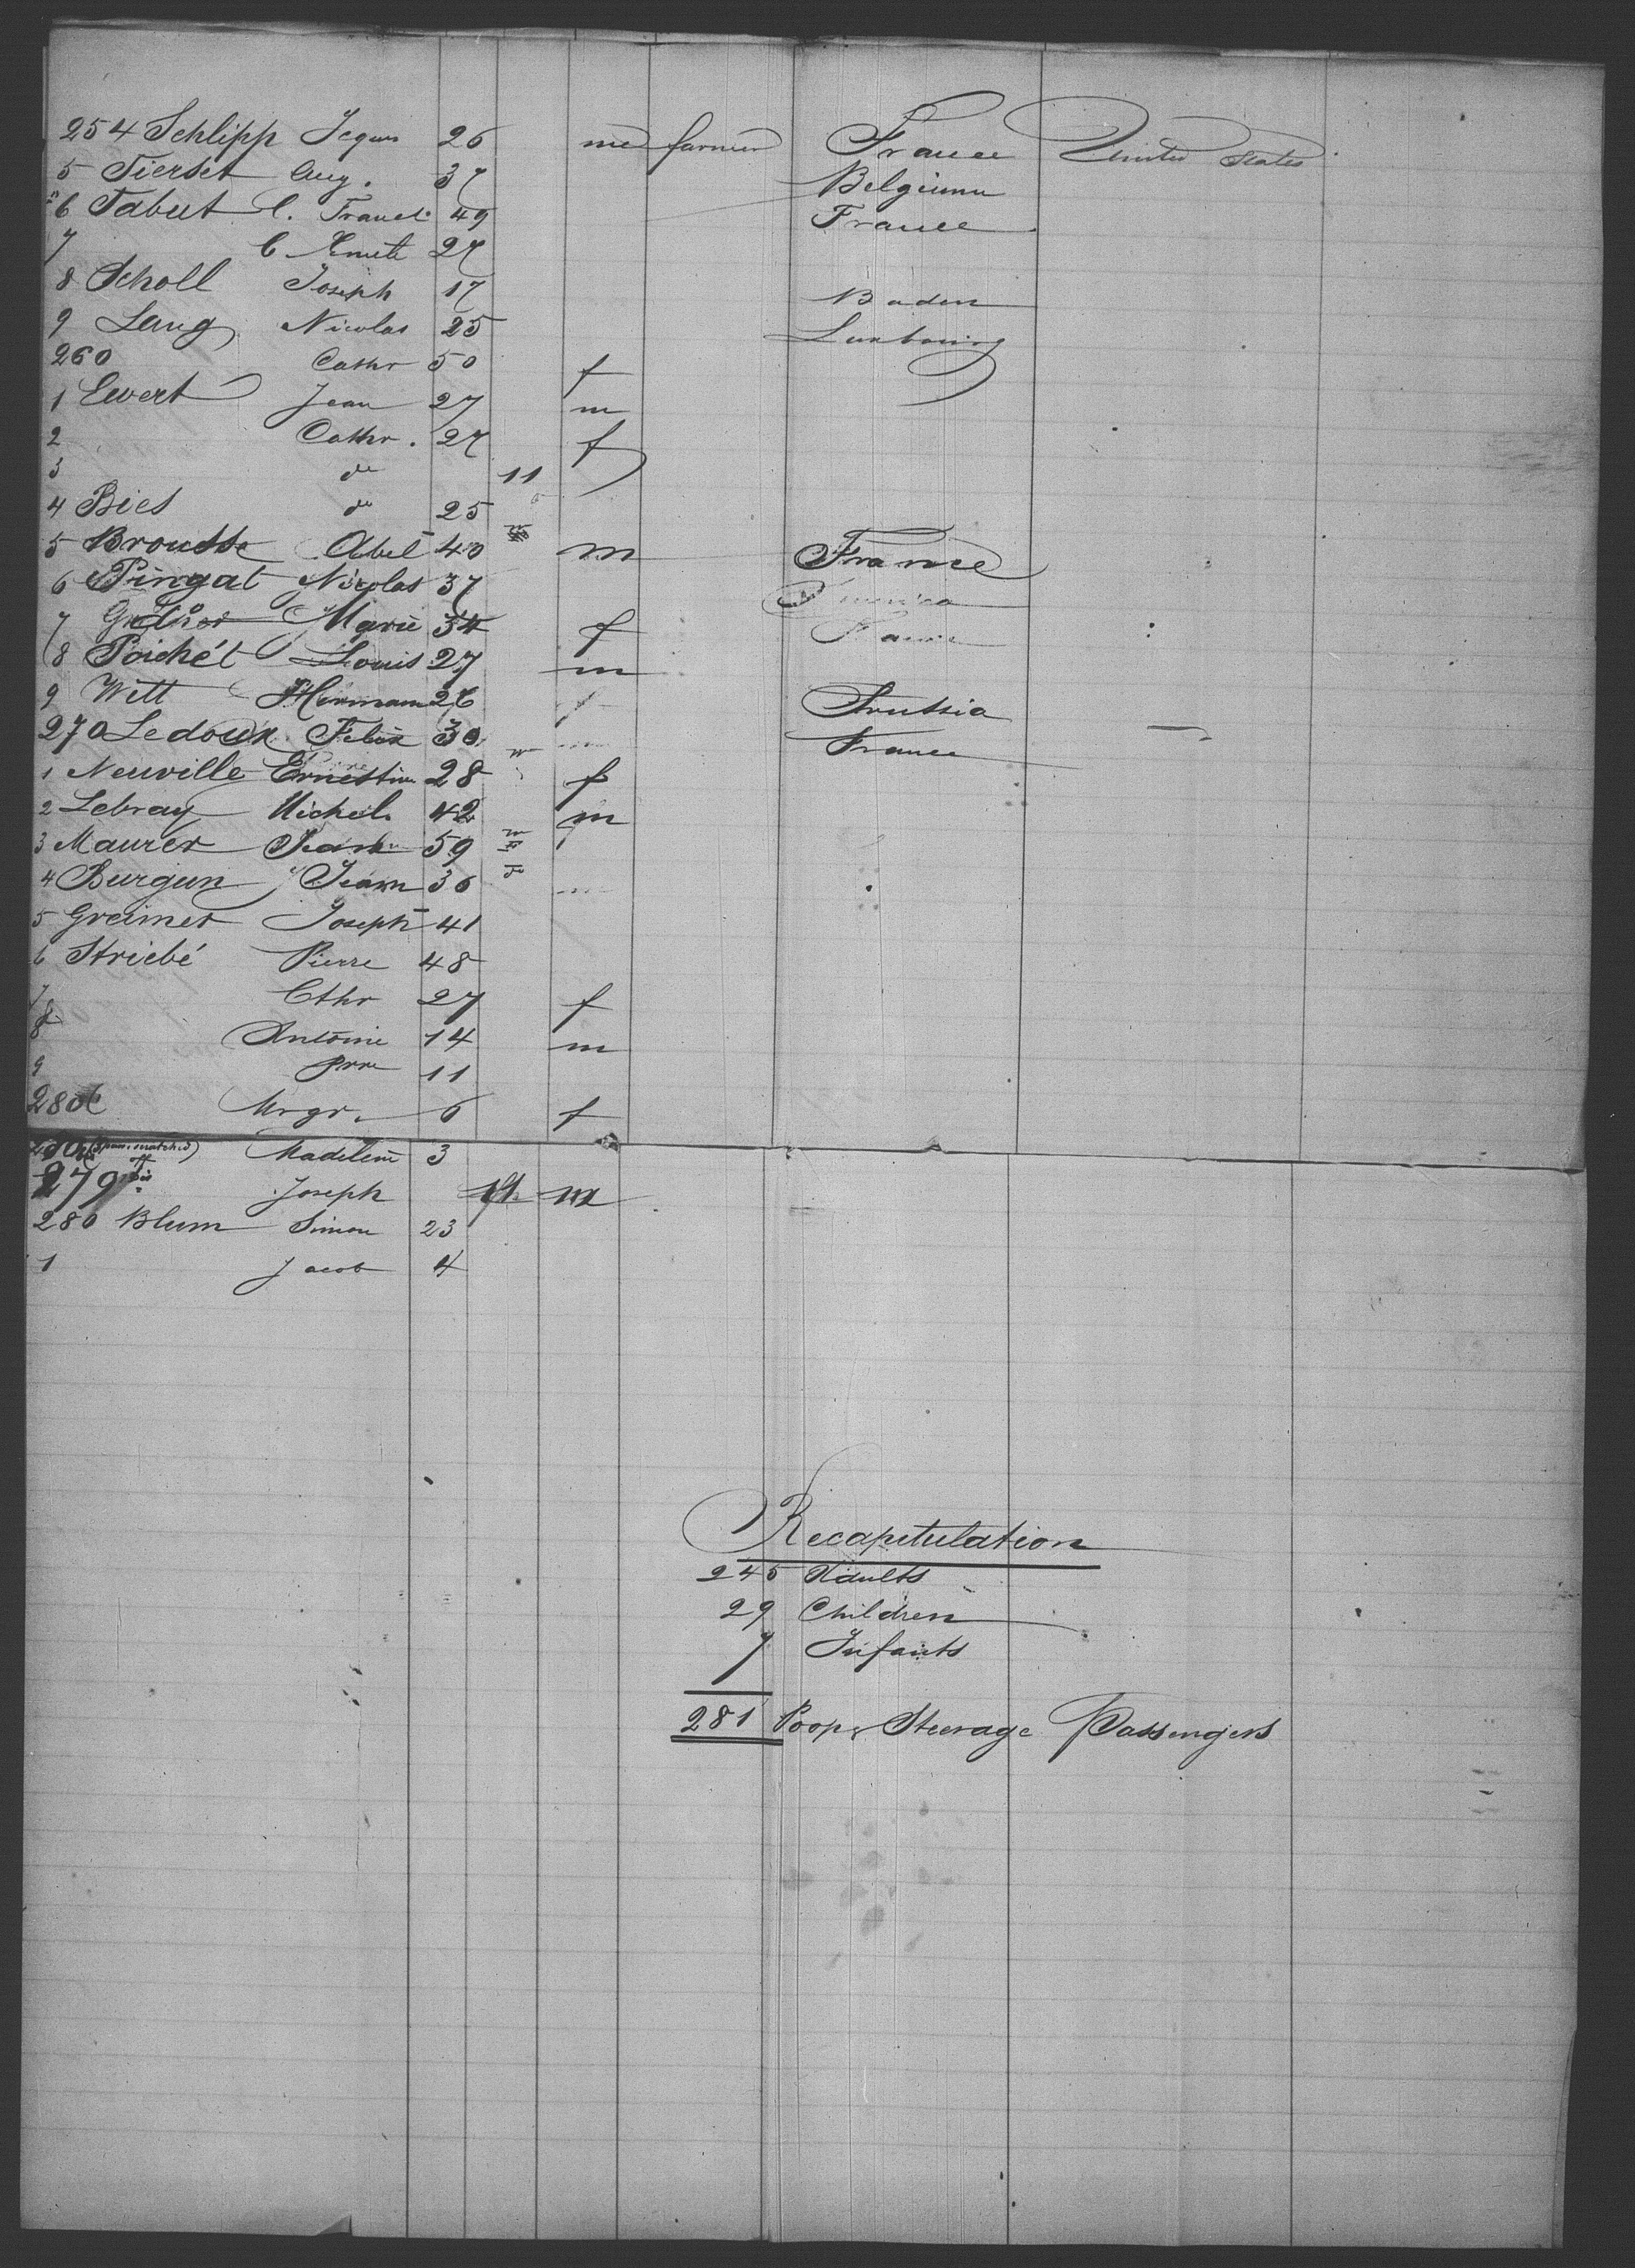 254 Schlipp Jques 26 me farmer France United States
5 Tierset Aug. 37 Belgium
6 Tabut C. Francs 49 France
7 C 27
8 Scholl Joseph 17 Baden
9 Lang Nicolas 25 Luxbourg
260 Cathr 50 f
1 Ewert Jean 27 m
2 Cathr. 27 f
3 do 11
4 Bies do 25
5 Brousse Abel 40 m France
6 Pingat Nicolas 37 America
7 Marie 34 f France
8 Poichét Louis 27 m
9 Witt Hermann 26 Prussia
270 Ledoux Felix 30 France
1 Neuville Ernestine 28 f
2 Lebray Michel 42 m
3 Maurer Jean 59
4 Burgun Jean 36
5 Greimer Joseph 41
6 Striebé Pierre 48
7 Cthr 27 f
8 Antoine 14 m
9 Prre 11
280 Mrgr. 6 f
Madelene 3
279 bis Joseph m
280 Blum Simon 23
1 Jacob 4
Recapitulation
245 Adults
29 Children
7 Infants
281 Poop & Steerage Passengers